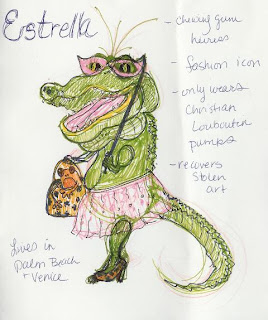 Estrella
- chewing gum
heiress
- fashion icon
- only wears
Christian
Louboutin
pumps
- recovers
stolen
art
Lives in
Palm Beach
+ Venice